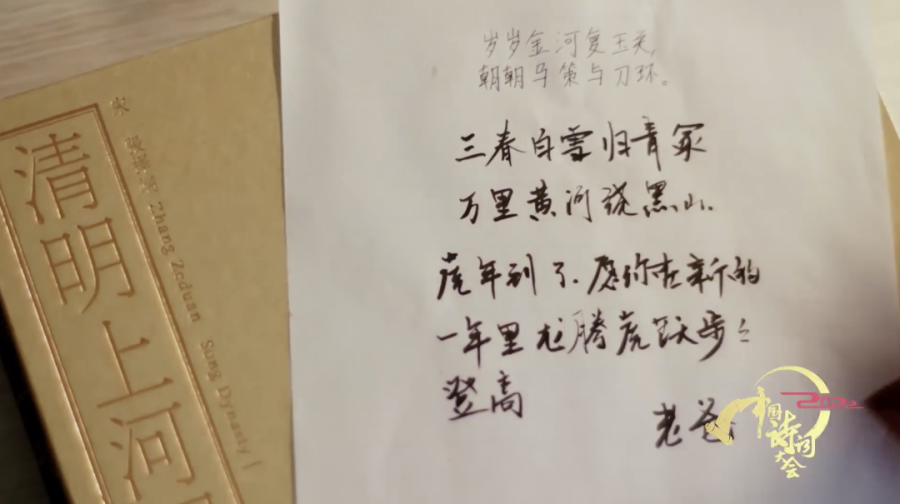 岁岁金河复玉关,
朝朝马策与刀环。
三春白雪归青冢
万里黄河绕黑山.
虎年到了.愿你在新的
一年里龙腾虎跃步々
登高
老爸
宋
Zhang Zeduan Sung Dynasty
清明上河
2022
中国诗词大会